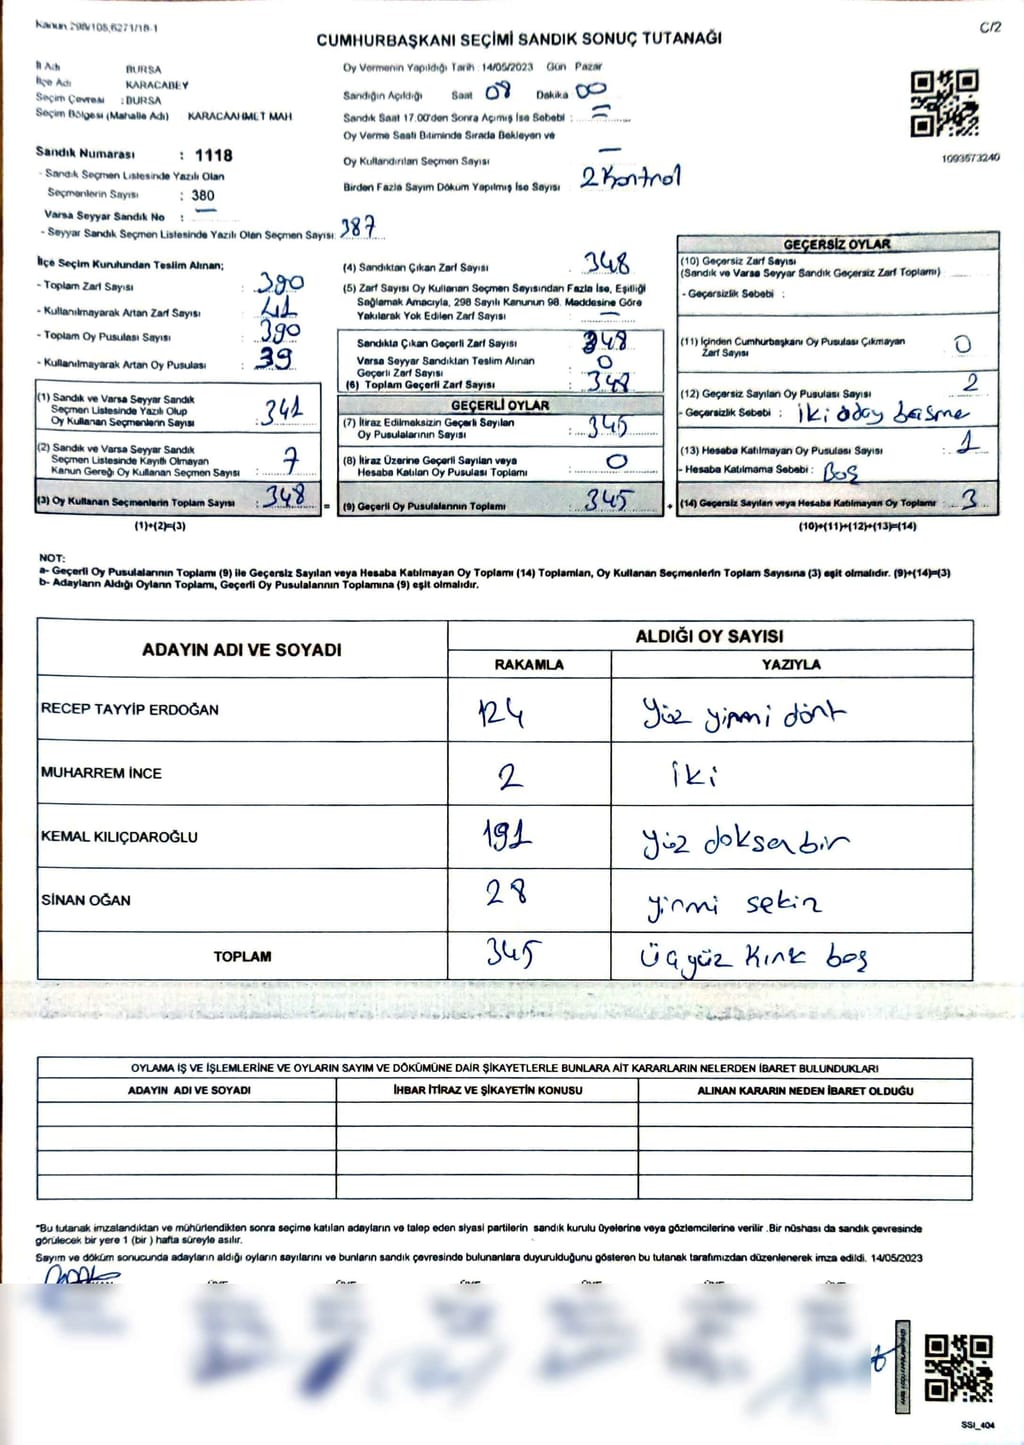 Kanun 298/105,6271/18-1
C/2
CUMHURBAŞKANI SEÇİMİ SANDIK SONUÇ TUTANAĞI
İl Adı BURSA
İlçe Adı KARACABEY
Seçim Çevresi : BURSA
Seçim Bölgesi (Mahalle Adı) KARACAAHMET MAH
Sandık Numarası : 1118
- Sandık Seçmen Listesinde Yazılı Olan
Seçmenlerin Sayısı : 380
Varsa Seyyar Sandık No : —
- Seyyar Sandık Seçmen Listesinde Yazılı Olan Seçmen Sayısı: 387
Oy Vermenin Yapıldığı Tarih : 14/05/2023 Gün Pazar
Sandığın Açıldığı Saat 08 Dakika 00
Sandık Saat 17.00'den Sonra Açılmış İse Sebebi :
Oy Verme Saati Bitiminde Sırada Bekleyen ve
Oy Kullandırılan Seçmen Sayısı —
Birden Fazla Sayım Döküm Yapılmış İse Sayısı 2 Kontrol
1093573240
İlçe Seçim Kurulundan Teslim Alınan;
- Toplam Zarf Sayısı : 390
- Kullanılmayarak Artan Zarf Sayısı : 41
- Toplam Oy Pusulası Sayısı : 390
- Kullanılmayarak Artan Oy Pusulası : 39
(1) Sandık ve Varsa Seyyar Sandık
Seçmen Listesinde Yazılı Olup
Oy Kullanan Seçmenlerin Sayısı : 341
(2) Sandık ve Varsa Seyyar Sandık
Seçmen Listesinde Kayıtlı Olmayan
Kanun Gereği Oy Kullanan Seçmen Sayısı : 7
(3) Oy Kullanan Seçmenlerin Toplam Sayısı : 348
(1)+(2)=(3)
(4) Sandıktan Çıkan Zarf Sayısı 348
(5) Zarf Sayısı Oy Kullanan Seçmen Sayısından Fazla İse, Eşitliği
Sağlamak Amacıyla, 298 Sayılı Kanunun 98. Maddesine Göre
Yakılarak Yok Edilen Zarf Sayısı : —
Sandıkta Çıkan Geçerli Zarf Sayısı 348
Varsa Seyyar Sandıktan Teslim Alınan
Geçerli Zarf Sayısı : 0
(6) Toplam Geçerli Zarf Sayısı : 348
GEÇERLİ OYLAR
(7) İtiraz Edilmeksizin Geçerli Sayılan
Oy Pusulalarının Sayısı : 345
(8) İtiraz Üzerine Geçerli Sayılan veya
Hesaba Katılan Oy Pusulası Toplamı : 0
(9) Geçerli Oy Pusulalarının Toplamı : 345
GEÇERSİZ OYLAR
(10) Geçersiz Zarf Sayısı
(Sandık ve Varsa Seyyar Sandık Geçersiz Zarf Toplamı)
- Geçersizlik Sebebi :
(11) İçinden Cumhurbaşkanı Oy Pusulası Çıkmayan
Zarf Sayısı 0
(12) Geçersiz Sayılan Oy Pusulası Sayısı 2
- Geçersizlik Sebebi : İki aday basme
(13) Hesaba Katılmayan Oy Pusulası Sayısı : 1
- Hesaba Katılmama Sebebi : Boş
(14) Geçersiz Sayılan veya Hesaba Katılmayan Oy Toplamı : 3
(10)+(11)+(12)+(13)=(14)
NOT:
a- Geçerli Oy Pusulalarının Toplamı (9) ile Geçersiz Sayılan veya Hesaba Katılmayan Oy Toplamı (14) Toplamları, Oy Kullanan Seçmenlerin Toplam Sayısına (3) eşit olmalıdır. (9)+(14)=(3)
b- Adayların Aldığı Oyların Toplamı, Geçerli Oy Pusulalarının Toplamına (9) eşit olmalıdır.
ADAYIN ADI VE SOYADI ALDIĞI OY SAYISI
RAKAMLA YAZIYLA
RECEP TAYYİP ERDOĞAN 124 Yüz yirmi dört
MUHARREM İNCE 2 İki
KEMAL KILIÇDAROĞLU 191 yüz doksan bir
SİNAN OĞAN 28 yirmi sekiz
TOPLAM 345 Üçyüz Kırk beş
OYLAMA İŞ VE İŞLEMLERİNE VE OYLARIN SAYIM VE DÖKÜMÜNE DAİR ŞİKAYETLERLE BUNLARA AİT KARARLARIN NELERDEN İBARET BULUNDUKLARI
ADAYIN ADI VE SOYADI İHBAR İTİRAZ VE ŞİKAYETİN KONUSU ALINAN KARARIN NEDEN İBARET OLDUĞU
"Bu tutanak imzalandıktan ve mühürlendikten sonra seçime katılan adayların ve talep eden siyasi partilerin sandık kurulu üyelerine veya gözlemcilerine verilir .Bir nüshası da sandık çevresinde
görülecek bir yere 1 (bir ) hafta süreyle asılır.
Sayım ve döküm sonucunda adayların aldığı oyların sayılarını ve bunların sandık çevresinde bulunanlara duyurulduğunu gösteren bu tutanak tarafımızdan düzenlenerek imza edildi. 14/05/2023
SSI_404